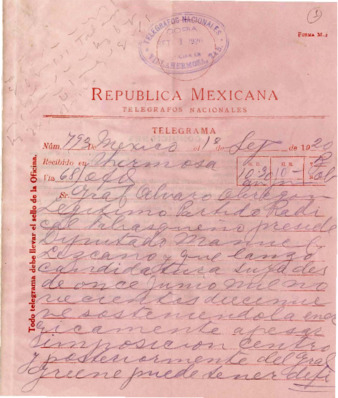 TELEGRAFOS NACIONALES
VILLAHERMOSA, TAB.
FORMA M.-1
REPUBLICA MEXICANA
TELEGRAFOS NACIONALES
TELEGRAMA
Núm. 792 De Mexico el 1º Sep de 1920
Recibido en V hermosa
Vía 68 H.D. H.R.
10.20 10
Sr. Gral Alvaro Obregon
Legitimo Partido Radi
cal Tabasqueño preside
Diputado Manuel
Lezcano y que lanzó
candidatura Sud des
de once Junio mil no
vecientos diecinue
ve sosteniendola ener
gicamente apesar
imposicion centro
y posteriormente del Gral
Greene puede tener
Todo telegrama debe llevar el sello de la Oficina.